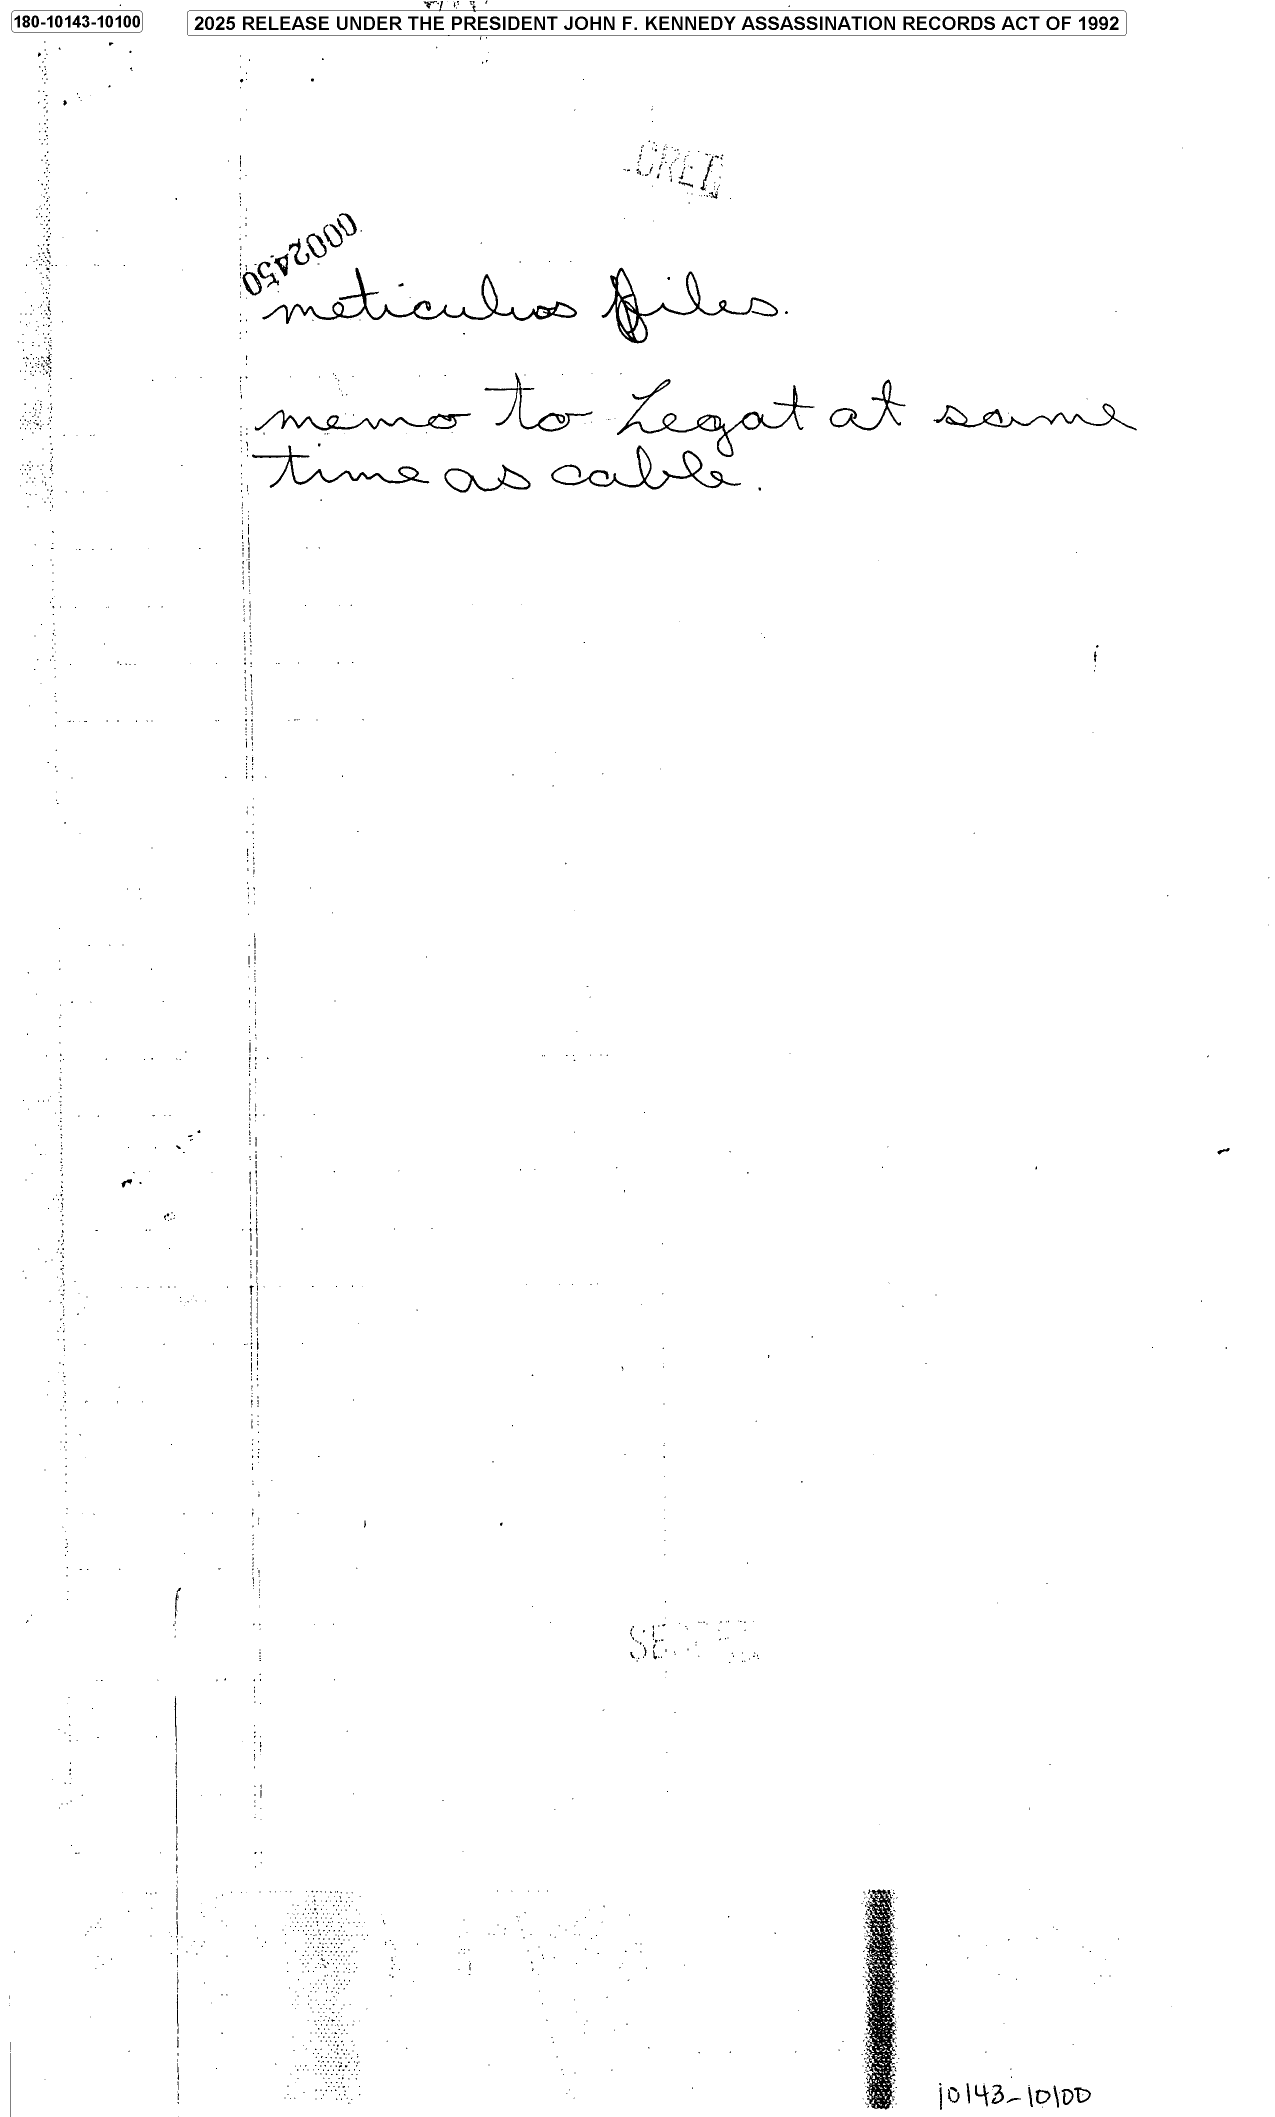 180-10143-10100
2025 RELEASE UNDER THE PRESIDENT JOHN F. KENNEDY ASSASSINATION RECORDS ACT OF 1992
0002450
meticulos files.
memo to Legat at same
time as cable.
10143-10100